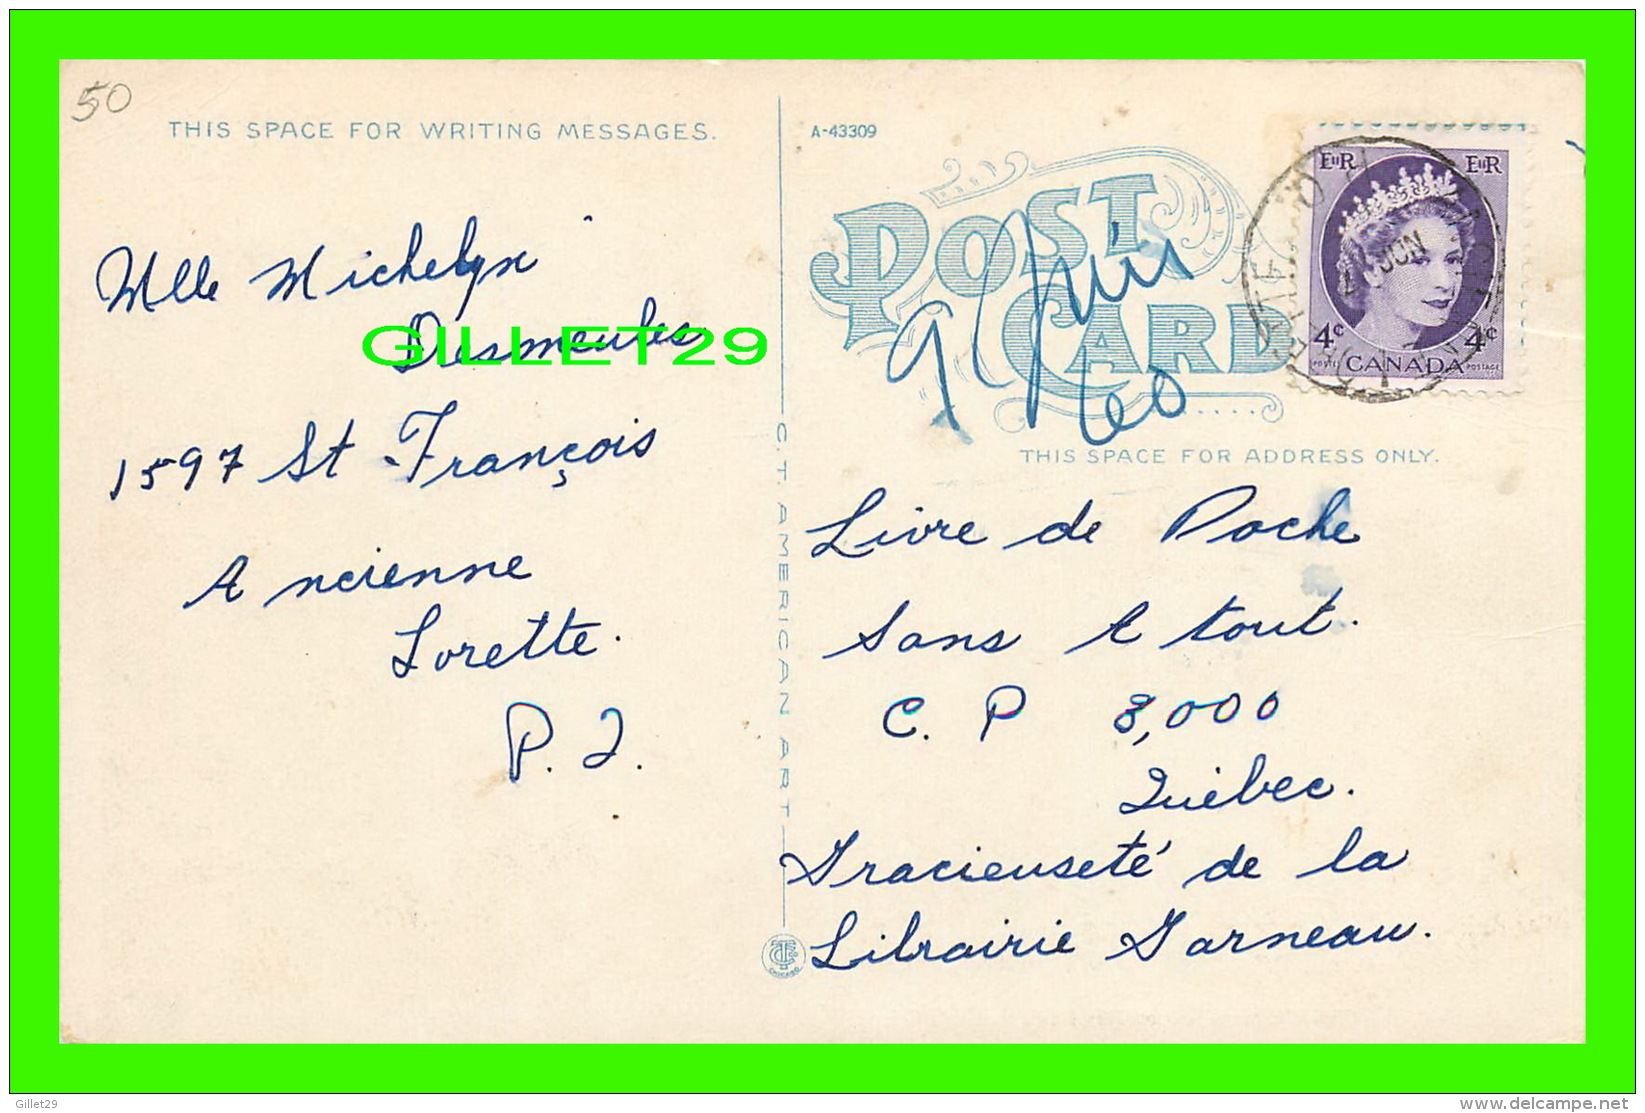 50
THIS SPACE FOR WRITING MESSAGES.
Mlle Michelyne
Desmeules
GILLET29
1597 St-François
Ancienne
Lorette.
P. Q.
C.T. AMERICAN ART
CHICAGO
A-43309
POST
CARD
EIIR
EIIR
4¢
4¢
POSTES
CANADA
POSTAGE
JUN
9 Juin
60
THIS SPACE FOR ADDRESS ONLY.
Livre de Poche
Sans A tout.
C. P 8,000
Québec.
Gracieuseté de la
Librairie Garneau.
Gillet29
www.delcampe.net